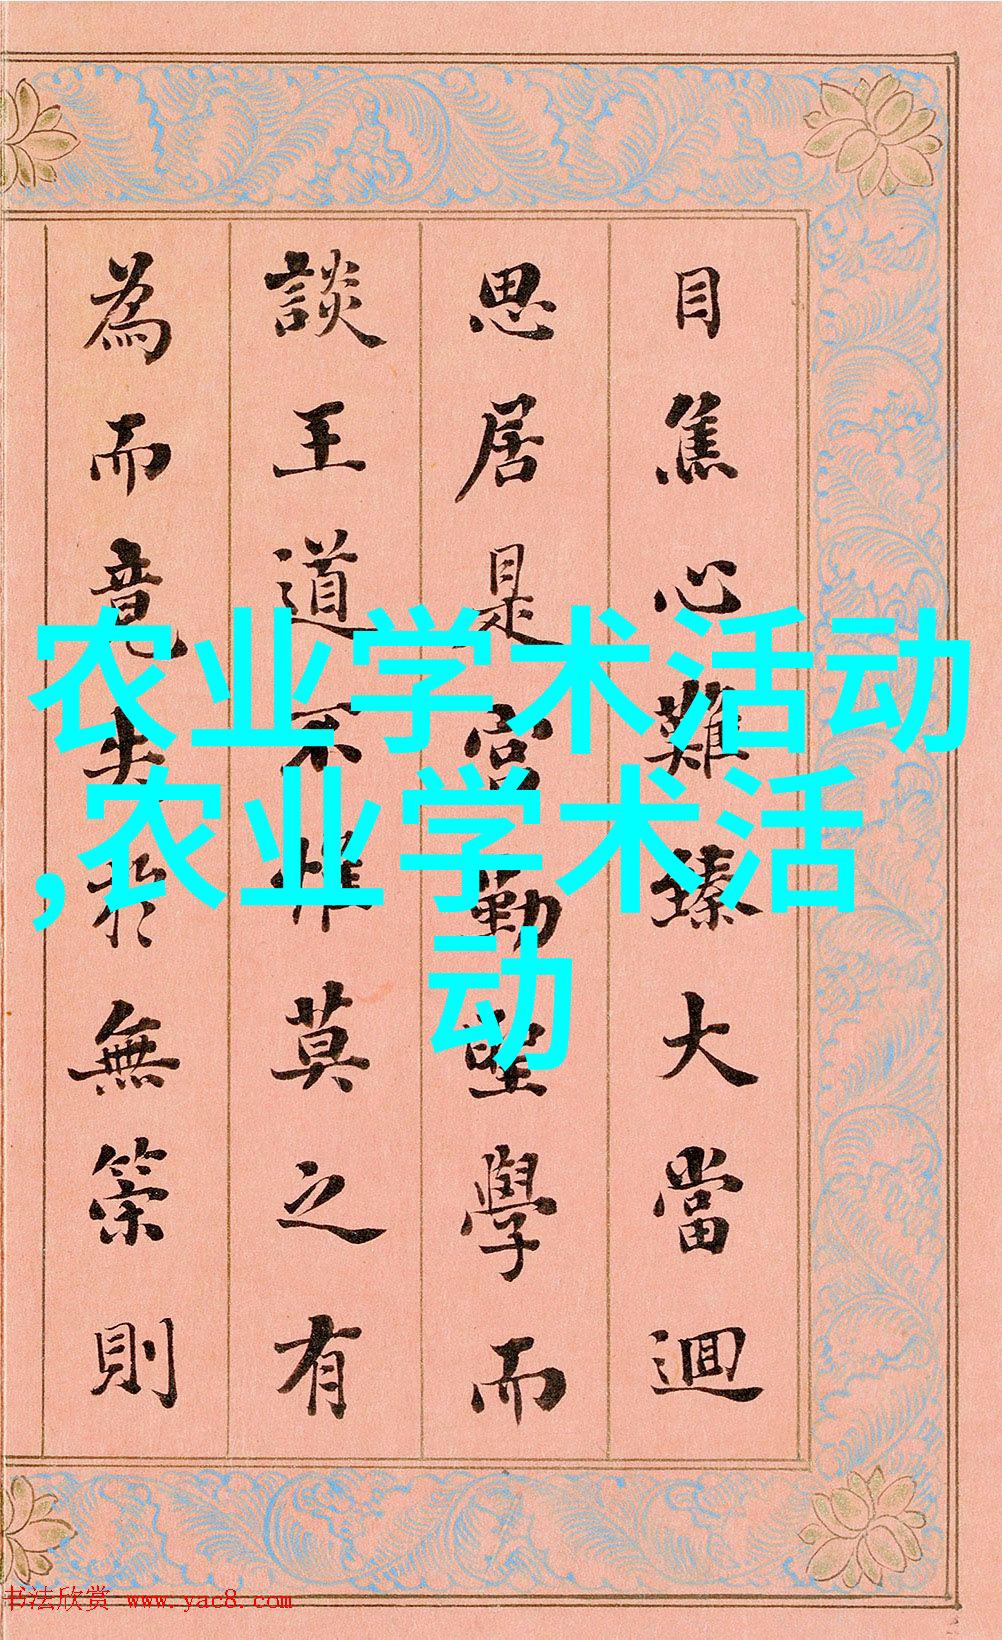 目焦心難臻大當迴
思居是官勤聖學而
談王道不惟莫之有
為而竟失於無策則
农业学术活动
,农业学术活
动
书法欣赏 www.yac8.com